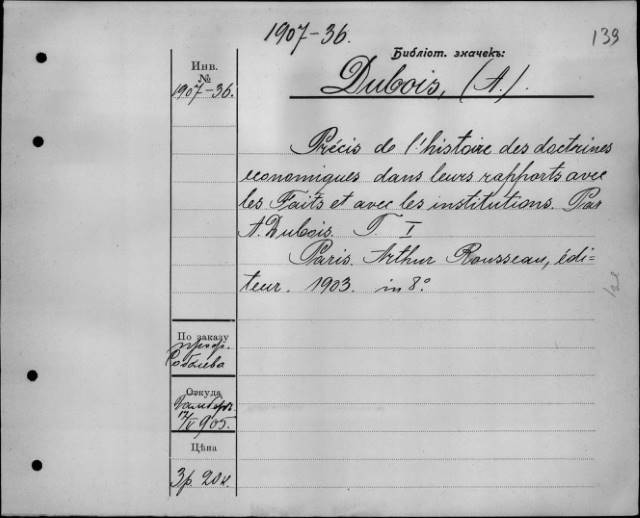 1907-36.
139
Библіот. значекъ:
Инв.
№
1907-36.
Dubois, (A.).
Précis de l'histoire des doctrines
économiques dans leurs rapports avec
les Faits et avec les institutions. Par
A. Dubois. T. I
Paris. Arthur Rousseau, édi=
teur. 1903. in 8°.
По заказу
проф.
Соболева
Откуда
905.
Цѣна
3 р. 20 к.